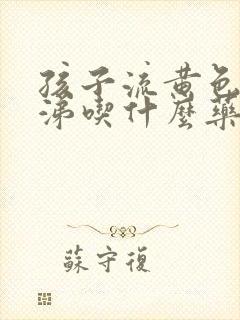 孩子流黄色鼻
涕喫什麼藥
蘇守復